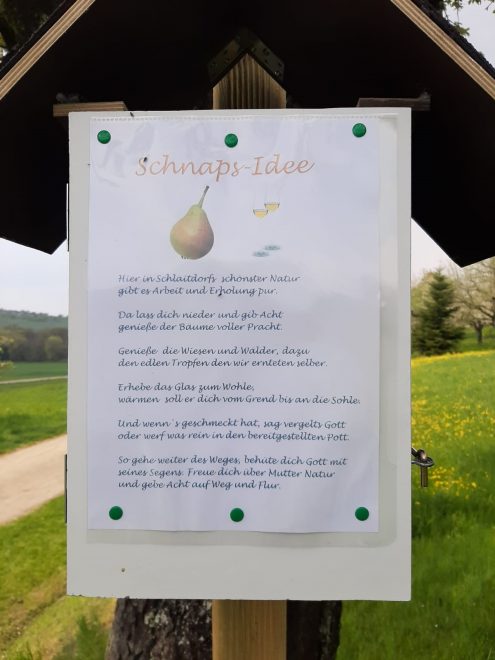 Schnaps-Idee
Hier in Schlaitdorfs schönster Natur
gibt es Arbeit und Erholung pur.
Da lass dich nieder und gib Acht
genieße der Bäume voller Pracht.
Genieße die Wiesen und Wälder, dazu
den edlen Tropfen den wir ernteten selber.
Erhebe das Glas zum Wohle,
wärmen soll er dich vom Grend bis an die Sohle.
Und wenn's geschmeckt hat, sag vergelts Gott
oder werf was rein in den bereitgestellten Pott.
So gehe weiter des Weges, behüte dich Gott mit
seines Segens. Freue dich über Mutter Natur
und gebe Acht auf Weg und Flur.